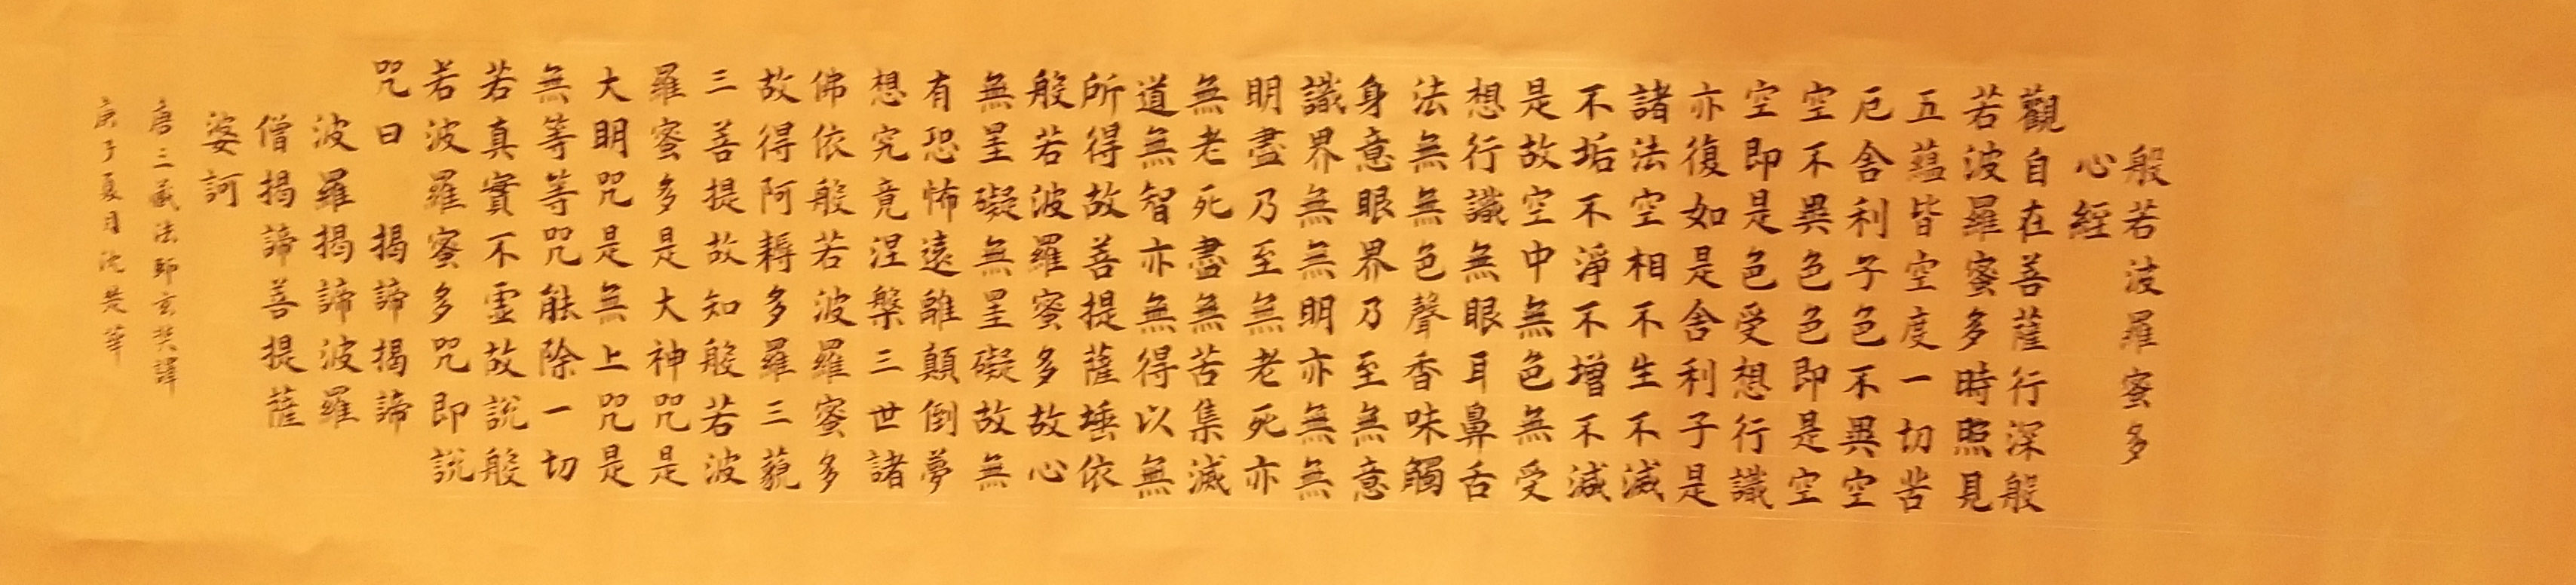 般若波羅蜜多
心經
觀自在菩薩行深般
若波羅蜜多時照見
五蘊皆空度一切苦
厄舍利子色不異空
空不異色色即是空
空即是色受想行識
亦復如是舍利子是
諸法空相不生不滅
不垢不淨不增不減
是故空中無色無受
想行識無眼耳鼻舌
法無無色聲香味觸
身意眼界乃至無意
識界無無明亦無無
明盡乃至無老死亦
無老死盡無苦集滅
道無智亦無得以無
所得故菩提薩埵依
般若波羅蜜多故心
無罣礙無罣礙故無
有恐怖遠離顛倒夢
想究竟涅槃三世諸
佛依般若波羅蜜多
故得阿耨多羅三藐
三菩提故知般若波
羅蜜多是大神咒是
大明咒是無上咒是
無等等咒能除一切
若真實不虛故說般
若波羅蜜多咒即說
咒曰 揭諦揭諦
波羅揭諦波羅
僧揭諦菩提薩
婆訶
唐三藏法師玄奘譯
庚子夏月沈